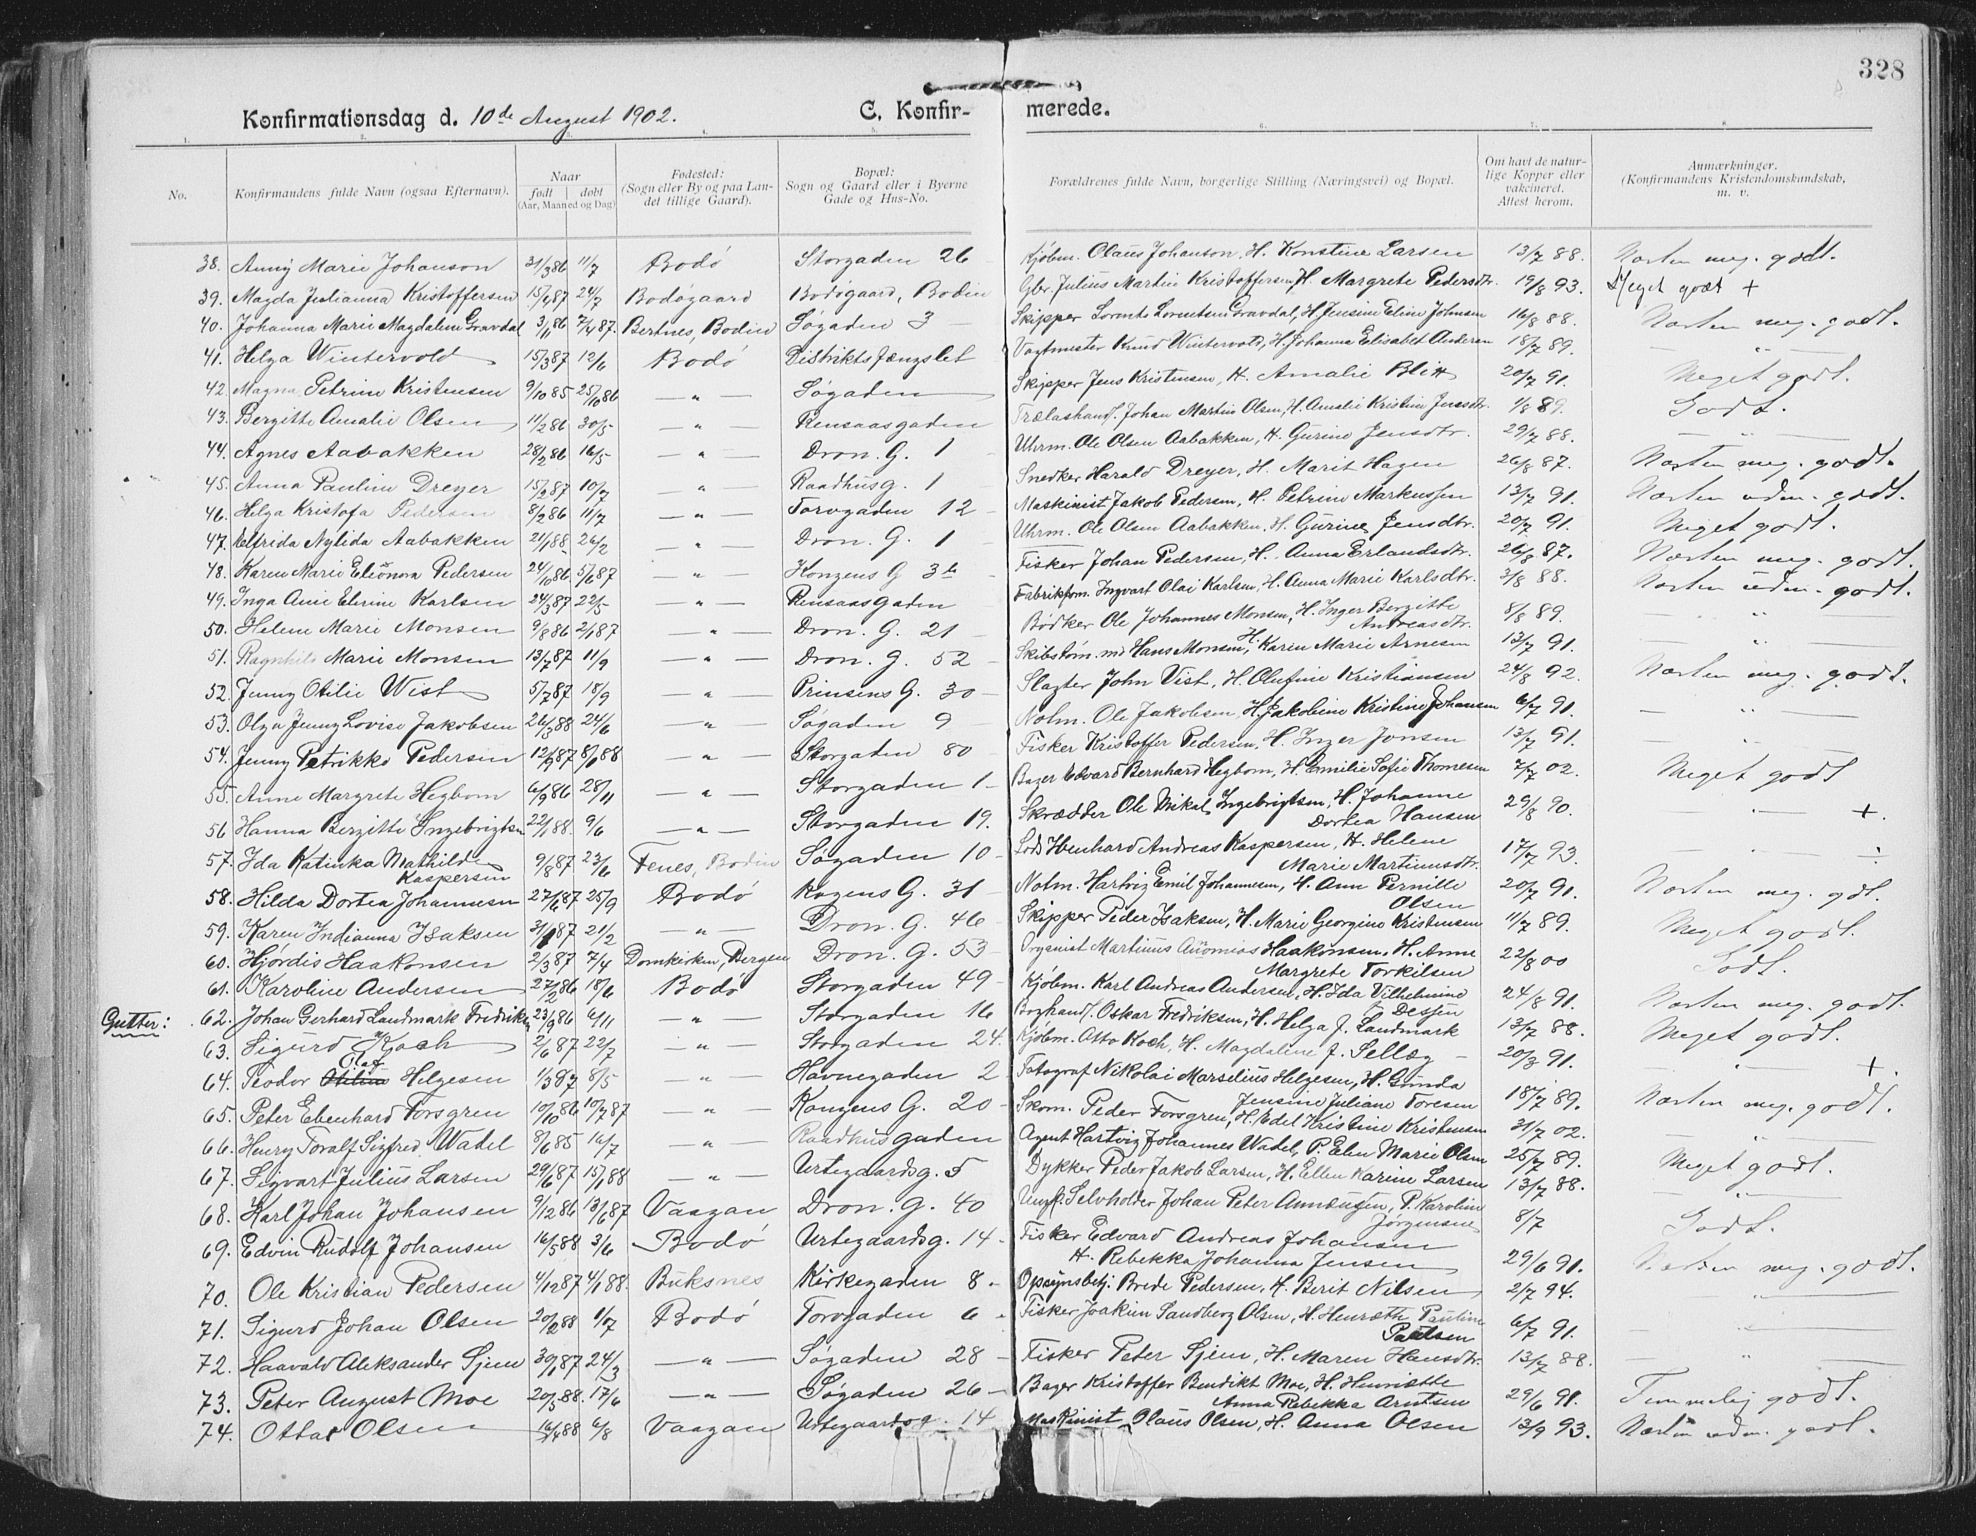 328
Konfirmationsdag d. 10de August 1902. C. Konfir- merede.
1. 2. 3. 4. 5. 6. 7. 8.
No. Konfirmandens fulde Navn (ogsaa Efternavn). Naar født døbt (Aar, Maaned og Dag) Fødested: (Sogn eller By og paa Landet tillige Gaard). Bopæl: Sogn og Gaard eller i Byerne Gade og Hus-No. Forældrenes fulde Navn, borgerlige Stilling (Næringsvei) og Bopæl. Om havt de naturlige Kopper eller vakcineret. Attest herom. Anmærkninger. (Konfirmandens Kristendomskundskab, m. v.
38. Anny Marie Johanson 31/3 86 11/7 Bodø Storgaden 26 Kjøbm. Olaus Johanson, H. Konstine Larsen 13/7 88. Næsten meg. godt.
39. Magda Julianna Kristoffersen 15/4 87 24/7 Bodøgaard Bodøgaard, Bodin Gbr. Julius Martin Kristoffersen, H. Margrete Pedersdtr. 19/8 93. Meget godt +
40. Johanna Marie Magdalene Gravdal 3/11 86 7/4 87. Bertnes, Bodin Søgaden 3 Skipper Lorents Lorentsen Gravdal, H. Jensine Eline Johnsen 16/8 88. Næsten meg. godt.
41. Helga Wintervold 15/3 87 12/6 Bodø Distriktsfængslet Vagtmester Knud Wintervold, H. Johanna Elisabet Andersen 18/7 89. — " —
42. Magna Petrine Kristensen 9/10 85 25/10 86 — " — Søgaden Skipper Jens Kristensen, H. Amalie Blix 20/7 91. Meget godt.
43. Bergitte Amalie Olsen 11/2 86 30/5 — " — Rensaasgaden Trælasthandl. Johan Martin Olsen, H. Amalie Kristine Jensdtr. 1/8 89. Godt.
44. Agnes Aabakken 28/2 86 16/5 — " — Dron. G. 1 Uhrm. Ole Olsen Aabakken, H. Gurine Jensdtr. 29/7 88. — " —
45. Anna Pauline Dreyer 15/2 87 10/7 — " — Raadhusg. 1 Snedker Harald Dreyer, H. Marit Hagen 26/8 87. Næsten meg. godt.
46. Helga Kristofa Pedersen 8/2 86 11/7 — " — Torvgaden 12 Maskinist Jakob Pedersen, H. Petrine Markussen 13/7 91. Næsten udm. godt.
47. Elfrida Nylida Aabakken 21/1 88 26/2 — " — Dron. G. 1 Uhrm. Ole Olsen Aabakken, H. Gurine Jensdtr. 20/7 91. Meget godt.
48. Karen Marie Eleonora Pedersen 24/10 86 5/6 87 — " — Kongens G 36 Fisker Johan Pedersen, H. Anna Erlandsdtr. 26/8 87. Næsten meg. godt.
49. Inga Anie Elerine Karlsen 24/3 87 22/5 — " — Rensaasgaden Fabrikform. Ingvart Olai Karlsen, H. Anna Marie Karlsdtr. 3/8 88. Næsten udm. godt.
50. Helene Marie Monsen 9/8 86 2/1 87 — " — Dron. G. 21 Bødker Ole Johannes Monsen, H. Inger Bergitte Andreasdtr. 8/8 89. — " —
51. Ragnhild Marie Monsen 13/7 87 11/9 — " — Dron. G. 52 Skibstøm. md Hans Monsen, H. Karen Marie Arnesen 13/7 91. — " —
52. Jenny Otilie Wist 5/7 87 18/9 — " — Prinsens G. 30 Slagter John Vist, H. Olufine Kristiansen 24/8 92. Næsten meg. godt.
53. Olga Jenny Lovise Jakobsen 26/3 88 24/6 " — Søgaden 9 Notm. Ole Jakobsen, H. Jakobine Kristine Johansen 6/7 91. — " —
54. Jenny Petrikke Pedersen 12/9 87 8/1 88 — " — Storgaden 80 Fisker Kristoffer Pedersen, H. Inger Jonsen 13/7 91. — " —
55. Anne Margrete Hegbom 6/9 86 28/11 — " — Storgaden 1 Bager Edvard Bernhard Hegbom, H. Emilie Sofie Thomesen 7/7 02. Meget godt
56 Hanna Bergitte Ingebrigtsen 22/1 88. 9/6 — " — Storgaden 19. Skrædder Ole Mikal Ingebrigtsen, H. Johanne Dortea Hansen 29/8 90. — " — +.
57. Ida Katinka Mathilde Kaspersen 9/8 87 23/6 Fenes, Bodin Søgaden 10 Lods Ebenhard Andreas Kaspersen, H. Helene Marie Martinusdtr. 17/7 93. — " —
58. Hilda Dortea Johannesen 27/6 87 25/9 Bodø Kongens G. 31 Notm. Hartvig Emil Johannesen, H. Ann Pernille Olsen 20/7 91. Næsten meg. gdt.
59. Karen Indianna Isaksen 31/1 87 21/2 — " — Dron. G. 46 Skipper Peder Isaksen, H. Marie Georgine Kristensen 11/7 89. Meget godt.
60. Hjørdis Haakonsen 2/3 87 7/4 Domkirken, Bergen Dron. G. 53 Organist Martinus Haakonsen, H. Anne Margrete Torkilsen 22/8 00 Godt.
61. Karoline Andersen 27/2 86 18/6 Bodø Storgaden 49 Kjøbm. Karl Andreas Andersen, H. Ida Vilhelmine Dessen 24/8 91. Næsten meg. godt.
Gutter: 62. Johan Gerhard Landmark Fredriksen 23/9 86 6/11 — " — Storgaden 16 Boghandl. Oskar Fredriksen, H. Helga f. Landmark 13/7 88. Meget godt.
63. Sigurd Koch 2/6 87 22/7 — " — Storgaden 24. Kjøbm. Otto Koch, H. Magdalene f. Sellæg 20/3 91. — " — +.
64. Teodor Olaf Helgesen 1/3 87 8/5 — " — Havnegaden 2 Fotograf Nikolai Marselius Helgesen, H. Gunda Jensine Juliane Toresen 18/7 89. Næsten meg. godt.
65. Peter Ebenhard Forsgren 10/10 86 10/7 87 " — Kongens G. 20 Skom. Peder Forsgren, H. Edel Kristine Kristensen 31/7 02. — " —
66. Henry Toralf Sigfred Wadel 8/6 85 16/7 — " — Raadhusgaden Agent Hartvig Johannes Wadel, P. Elen Marie Olsen 25/7 89. Meget godt.
67. Sigvart Julius Larsen 29/6 87 15/1 88 — " — Urtegaardsg. 5 Dykker Peder Jakob Larsen, H. Ellen Karine Larsen 13/7 88. — " —
68. Karl Johan Johansen 9/12 86 13/6 87 Vaagan Dron. G. 40 Ungk. Selvholder Johan Peter Amundsen, P. Karoline Jørgensen 8/7 Godt.
69. Edvin Rudolf Johansen 16/5 88 3/6 Bodø Urtegaardsg. 14 Fisker Edvard Andreas Johansen H. Rebekka Johanna Jensen 29/6 91. Næsten meg. godt.
70. Ole Kristian Pedersen 4/12 87 4/1 88. Buksnes Kirkegaden 8. Opsynsbetj. Brede Pedersen, H. Berit Nilsen 2/7 94. — " —
71. Sigurd Johan Olsen 20/2 88 1/7 Bodø Torvgaden 6 Fisker Joakim Sandberg Olsen, H. Henrætte Pauline Paulsen 6/7 91. — " —
72. Haavald Aleksander Sjem 30/1 87 24/3 — " — Søgaden 28 Fisker Peter Sjem, H. Maren Hansdtr. 13/7 88. — " —
73. Peter August Moe 20/5 88. 17/6 — " — Søgaden 26 Bager Kristoffer Bendikt Moe, H. Henriette Anna Rebekka Arntsen 29/6 91. Temmelig godt.
74. Ottar Olsen 16/4 88 6/8 Vaagan Urtegaardsg. 14 Maskinist Olaus Olsen, H. Anna Olsen 13/9 93. Næsten udm. godt.